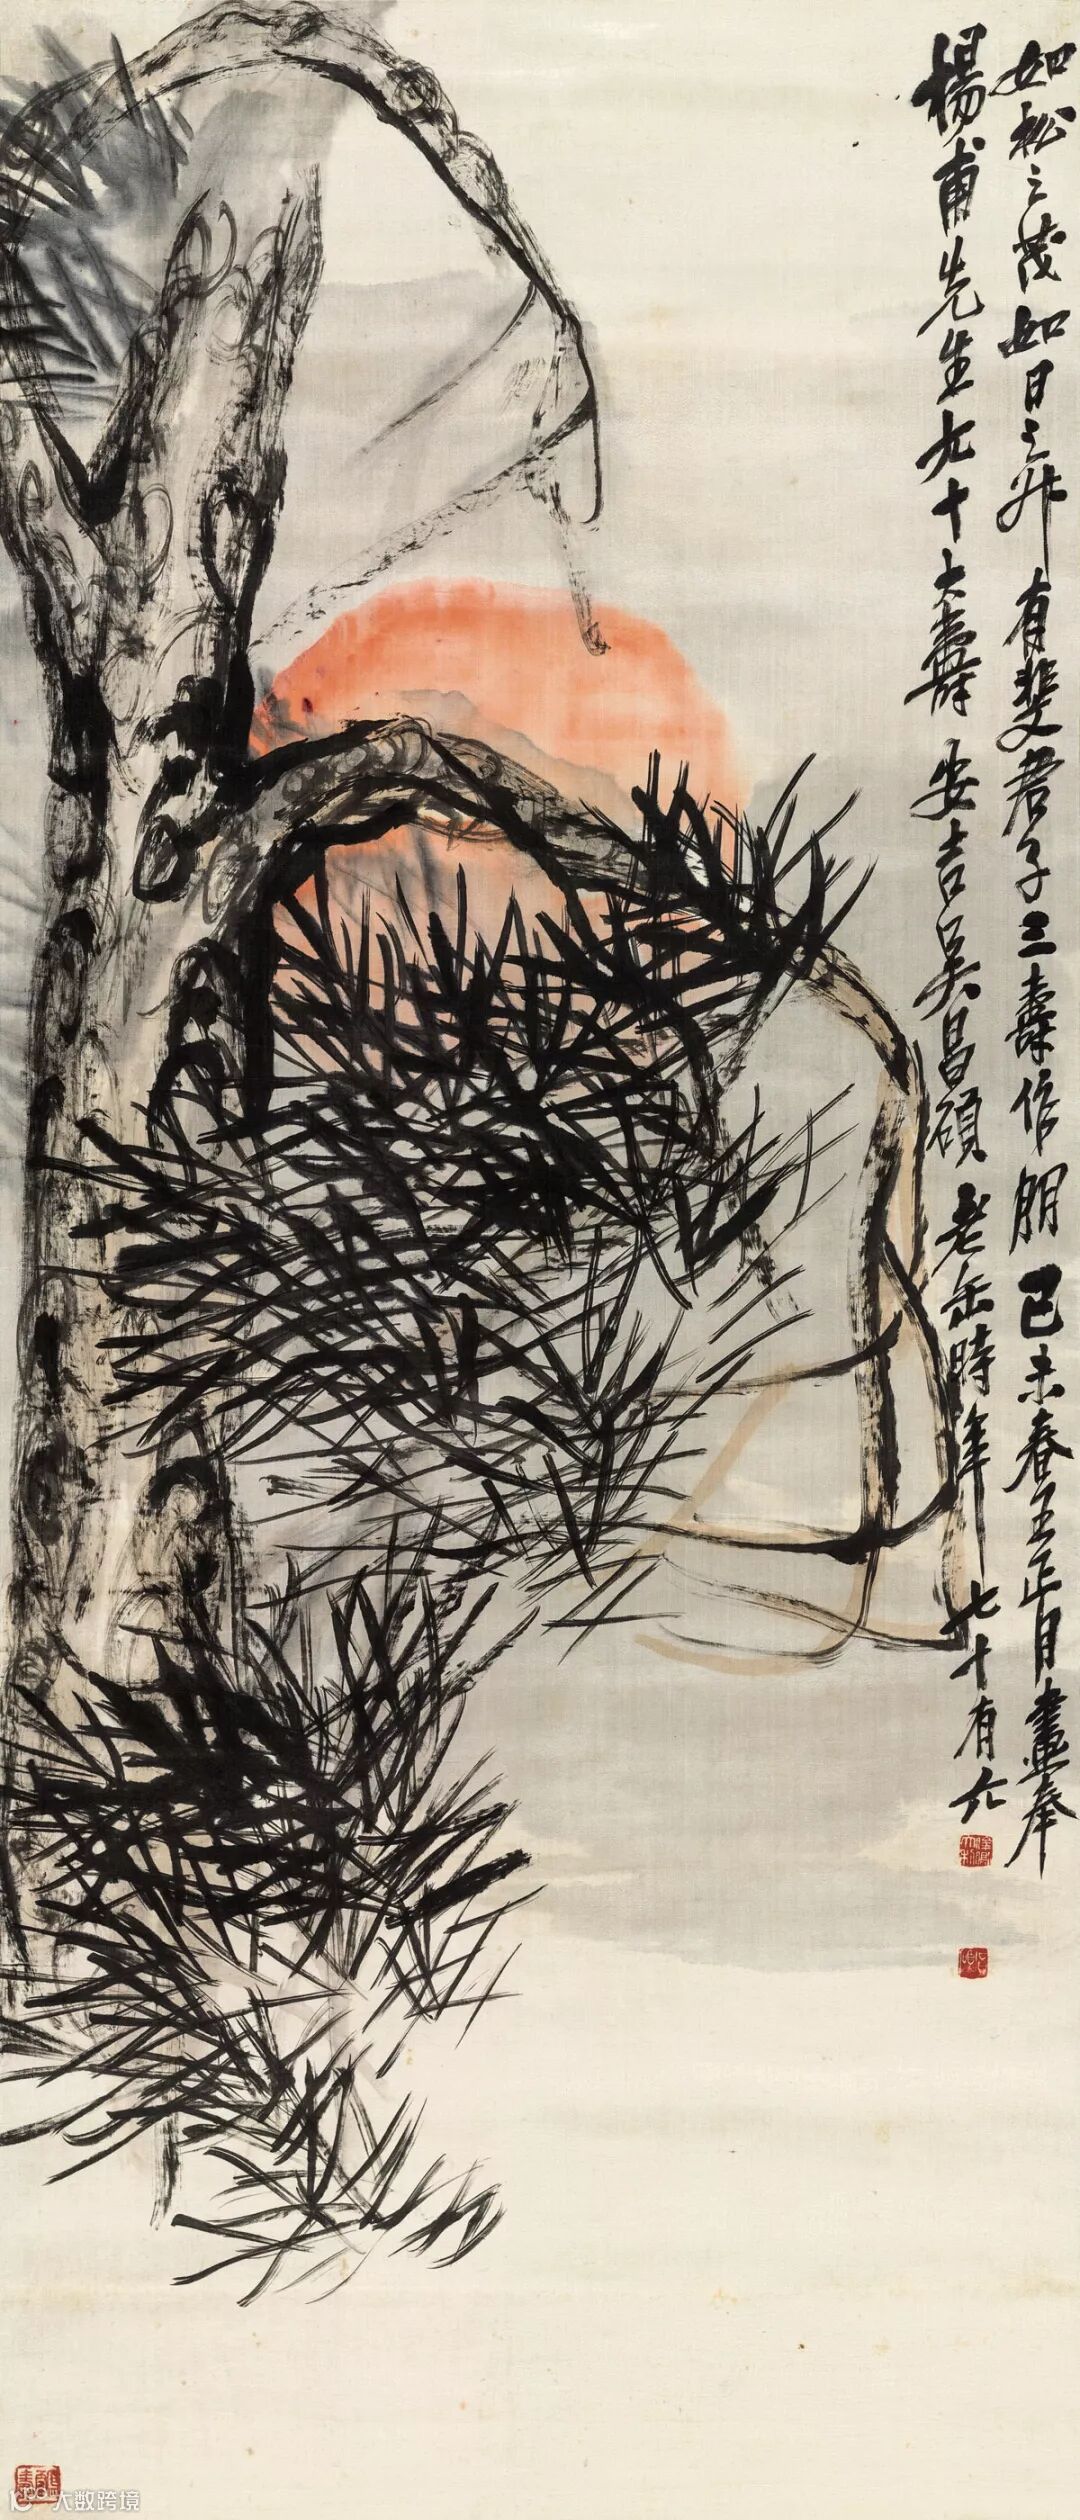 如松之茂如日之升有斐君子三壽作朋己未春王正月畫奉
楊甫先生六十大壽安吉吳昌碩老缶時年七十有六
大数跨境